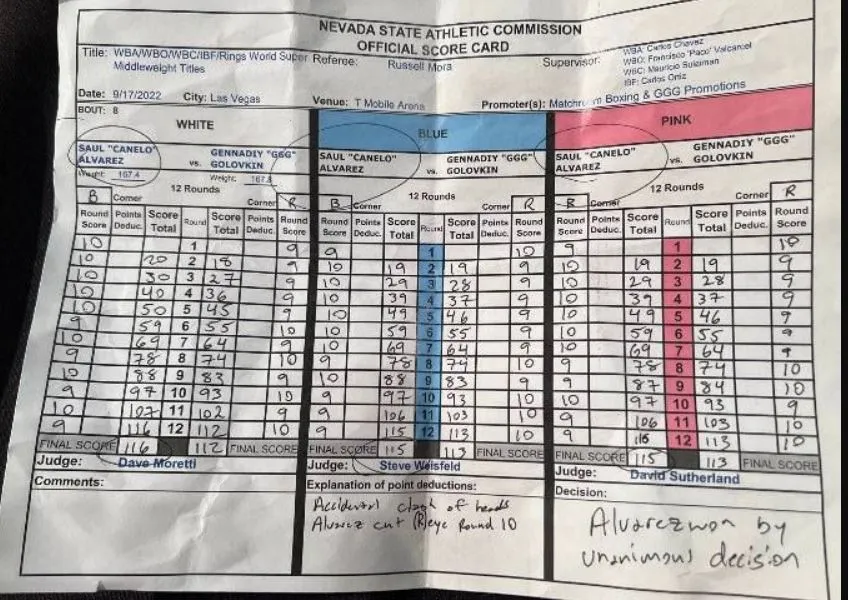 NEVADA STATE ATHLETIC COMMISSION
OFFICIAL SCORE CARD
Title: WBA/WBO/WBC/IBF/Rings World Super Middleweight Titles
Referee: Russell Mora
Supervisor: WBA: Carlos Chavez
WBO: Francisco "Paco" Valcarcel
WBC: Mauricio Sulaiman
IBF: Carlos Ortiz
Date: 9/17/2022 City: Las Vegas Venue: T Mobile Arena Promoter(s): Boxing & GGG Promotions
BOUT: 8
WHITE
SAUL "CANELO" ALVAREZ vs. GENNADIY "GGG" GOLOVKIN
Weight: 167.4 Weight: 167.8
12 Rounds
B Corner Corner R
Round Score Points Deduc. Score Total Round Score Total Points Deduc. Round Score
10 1 9
10 20 2 18 9
10 30 3 27 9
10 40 4 36 9
10 50 5 45 9
9 59 6 55 10
10 69 7 64 9
9 78 8 74 10
10 88 9 83 9
9 97 10 93 10
10 107 11 102 9
9 116 12 112 10
FINAL SCORE 116 112 FINAL SCORE
Judge: Dave Moretti
Comments:
BLUE
SAUL "CANELO" ALVAREZ vs. GENNADIY "GGG" GOLOVKIN
12 Rounds
B Corner Corner R
Round Score Points Deduc. Score Total Round Score Total Points Deduc. Round Score
9 1 10
10 19 2 19 9
10 29 3 28 9
10 39 4 37 9
10 49 5 46 9
10 59 6 55 9
10 69 7 64 9
9 78 8 74 10
10 88 9 83 9
9 97 10 93 10
9 106 11 103 10
9 115 12 113 10
FINAL SCORE 115 113 FINAL SCORE
Judge: Steve Weisfeld
Explanation of point deductions:
Accidental clash of heads
Alvarez cut (R) eye Round 10
PINK
SAUL "CANELO" ALVAREZ vs. GENNADIY "GGG" GOLOVKIN
12 Rounds
B Corner Corner R
Round Score Points Deduc. Score Total Round Score Total Points Deduc. Round Score
9 1 10
10 19 2 19 9
10 29 3 28 9
10 39 4 37 9
10 49 5 46 9
10 59 6 55 9
10 69 7 64 9
9 78 8 74 10
9 87 9 84 10
10 97 10 93 9
9 106 11 103 10
9 115 12 113 10
FINAL SCORE 115 113 FINAL SCORE
Judge: David Sutherland
Decision:
Alvarez won by
unanimous decision